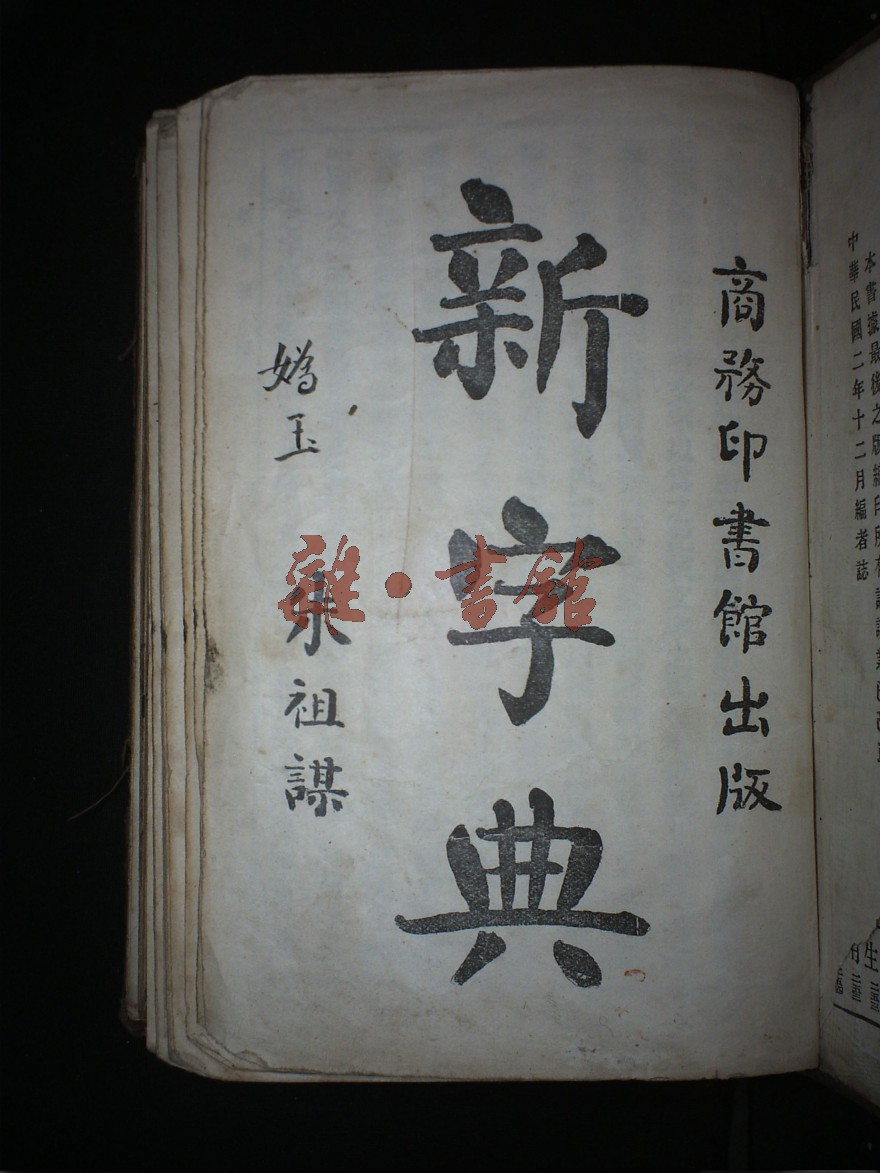 本書據最後之版編印所有
中華民國二年十二月編者誌
商務印書館出版
新字典
玉 朱祖謀
雜·書館